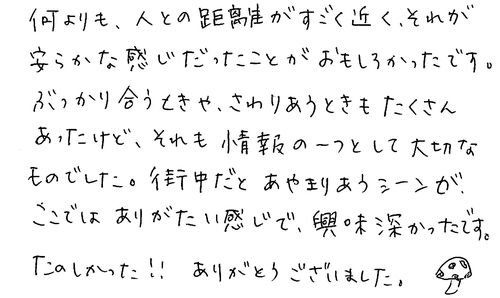 何よりも、人との距離がすごく近く、それが
安らかな感じだったことがおもしろかったです。
ぶつかり合うときや、さわりあうときもたくさん
あったけど、それも情報の一つとして大切な
ものでした。街中だとあやまりあうシーンが、
ここではありがたい感じで、興味深かったです。
たのしかった!! ありがとうございました。